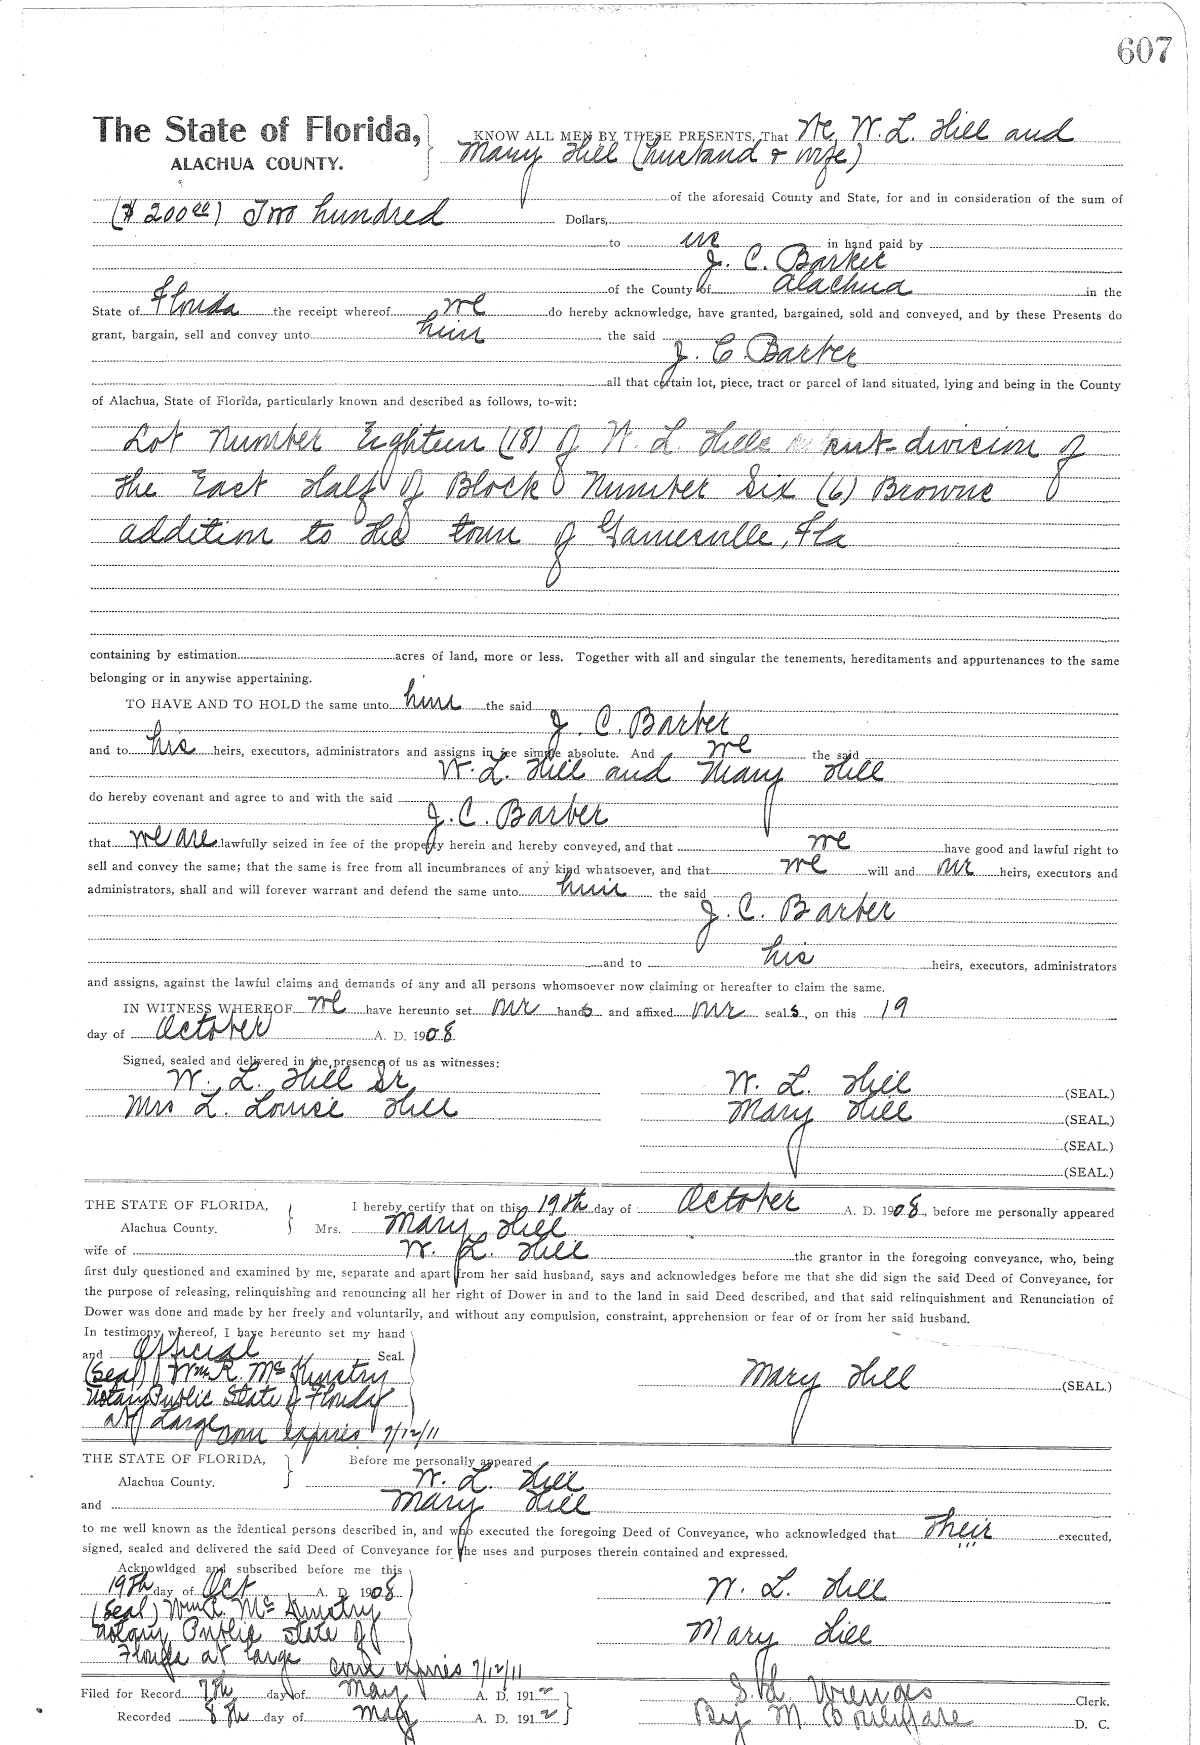 607
The State of Florida, KNOW ALL MEN BY THESE PRESENTS, That We, W. L. Hill and
ALACHUA COUNTY. Mary Hill (husband & wife)
of the aforesaid County and State, for and in consideration of the sum of
($200 00) Two hundred Dollars,
to us in hand paid by
J. C. Barber
of the County of Alachua in the
State of Florida the receipt whereof we do hereby acknowledge, have granted, bargained, sold and conveyed, and by these Presents do
grant, bargain, sell and convey unto him the said
J. C. Barber
all that certain lot, piece, tract or parcel of land situated, lying and being in the County
of Alachua, State of Florida, particularly known and described as follows, to-wit:
Lot Number Eighteen (18) of W. L. Hills sub-division of
the East Half of Block Number Six (6) Browns
addition to the town of Gainesville, Fla
containing by estimation acres of land, more or less. Together with all and singular the tenements, hereditaments and appurtenances to the same
belonging or in anywise appertaining.
TO HAVE AND TO HOLD the same unto him the said
J. C. Barber
and to his heirs, executors, administrators and assigns in fee simple absolute. And we the said
W. L. Hill and Mary Hill
do hereby covenant and agree to and with the said
J. C. Barber
that we are lawfully seized in fee of the property herein and hereby conveyed, and that we have good and lawful right to
sell and convey the same; that the same is free from all incumbrances of any kind whatsoever, and that we will and our heirs, executors and
administrators, shall and will forever warrant and defend the same unto him the said
J. C. Barber
and to his heirs, executors, administrators
and assigns, against the lawful claims and demands of any and all persons whomsoever now claiming or hereafter to claim the same.
IN WITNESS WHEREOF we have hereunto set our hands and affixed our seals, on this 19
day of October A. D. 1908.
Signed, sealed and delivered in the presence of us as witnesses:
W. L. Hill Sr W. L. Hill (SEAL.)
Mrs L. Louise Hill Mary Hill (SEAL.)
(SEAL.)
(SEAL.)
THE STATE OF FLORIDA, I hereby certify that on this 19th day of October A. D. 1908, before me personally appeared
Alachua County. Mrs. Mary Hill
wife of W. L. Hill the grantor in the foregoing conveyance, who, being
first duly questioned and examined by me, separate and apart from her said husband, says and acknowledges before me that she did sign the said Deed of Conveyance, for
the purpose of releasing, relinquishing and renouncing all her right of Dower in and to the land in said Deed described, and that said relinquishment and Renunciation of
Dower was done and made by her freely and voluntarily, and without any compulsion, constraint, apprehension or fear of or from her said husband.
In testimony whereof, I have hereunto set my hand
and Official Seal.
(Seal) Wm R. McKinstry Mary Hill (SEAL.)
Notary Public State of Florida
at Large com expires 7/12/11
THE STATE OF FLORIDA, Before me personally appeared
Alachua County. W. L. Hill
and Mary Hill
to me well known as the identical persons described in, and who executed the foregoing Deed of Conveyance, who acknowledged that their executed,
signed, sealed and delivered the said Deed of Conveyance for the uses and purposes therein contained and expressed.
Acknowldged and subscribed before me this
19th day of Oct A. D. 1908 W. L. Hill
(Seal) Wm R. McKinstry
Notary Public State of Mary Hill
Florida at large com expires 7/12/11
Filed for Record 7th day of May A. D. 1912 Clerk.
Recorded 8th day of May A. D. 1912 By M. D. C.